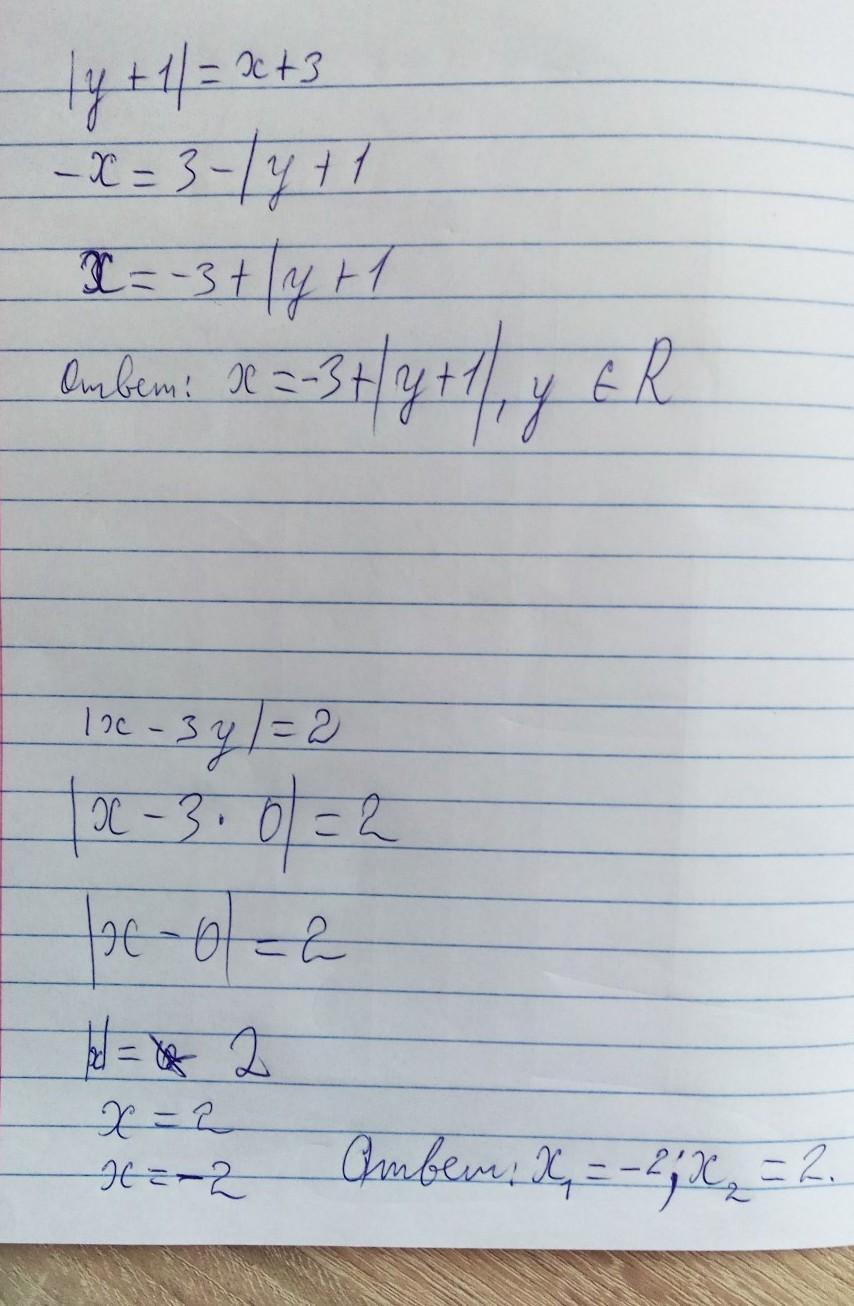 |y + 1| = x + 3
-x = 3 - |y + 1
x = -3 + |y + 1
Ответ: x = -3 + |y + 1|, y ∈ R
|x - 3y| = 2
|x - 3 · 0| = 2
|x - 0| = 2
|x| = 2
x = 2
x = -2
Ответ: x₁ = -2; x₂ = 2.